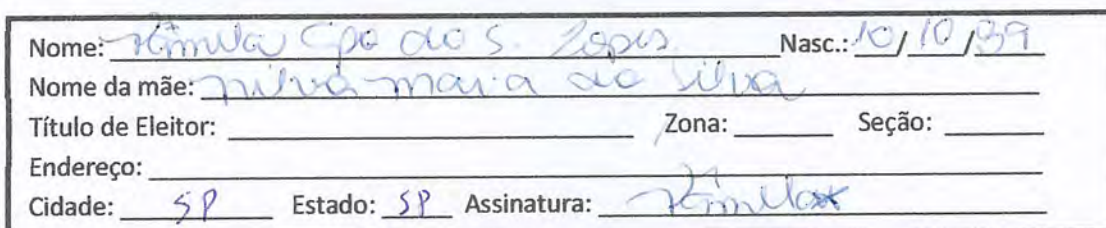 Nome: Kâmila Cpa do S. Lopes Nasc.: 10/10/39
Nome da mãe: nilva maria da Silva
Título de Eleitor: Zona: Seção:
Endereço:
Cidade: SP Estado: SP Assinatura: Kâmila